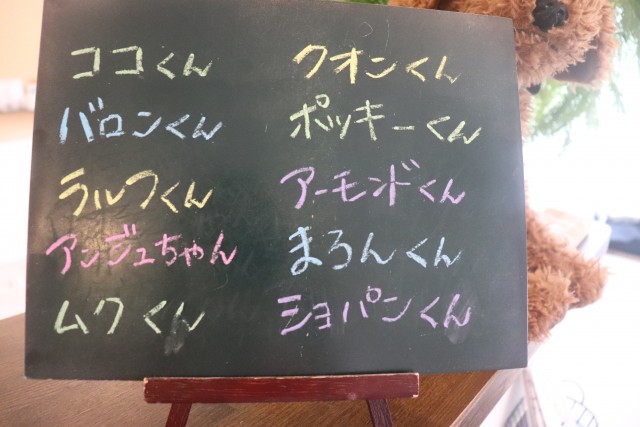 ココくん
バロンくん
ラルフくん
アンジュちゃん
ムクくん
クオンくん
ポッキーくん
アーモンドくん
まろんくん
ショパンくん